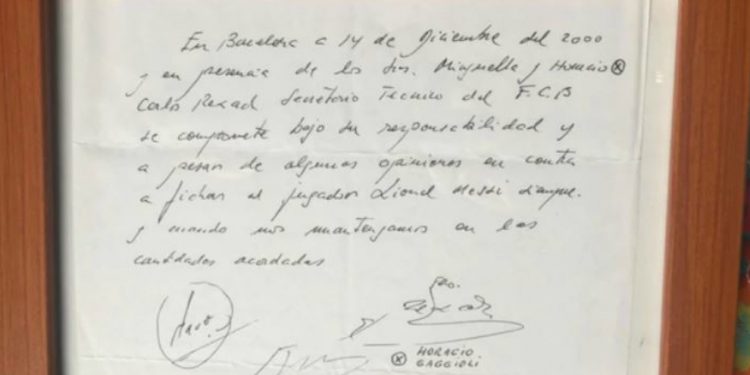 En Barcelona a 14 de Diciembre del 2000
y en presencia de los Srs. Minguella y Horacio ⓧ
Carlo Rexach Secretario Técnico del F.C.B
se compromete bajo su responsabilidad y
a pesar de algunas opiniones en contra
a fichar al jugador Lionel Messi siempre
y cuando nos mantengamos en las
cantidades acordadas
ⓧ HORACIO
GAGGIOLI